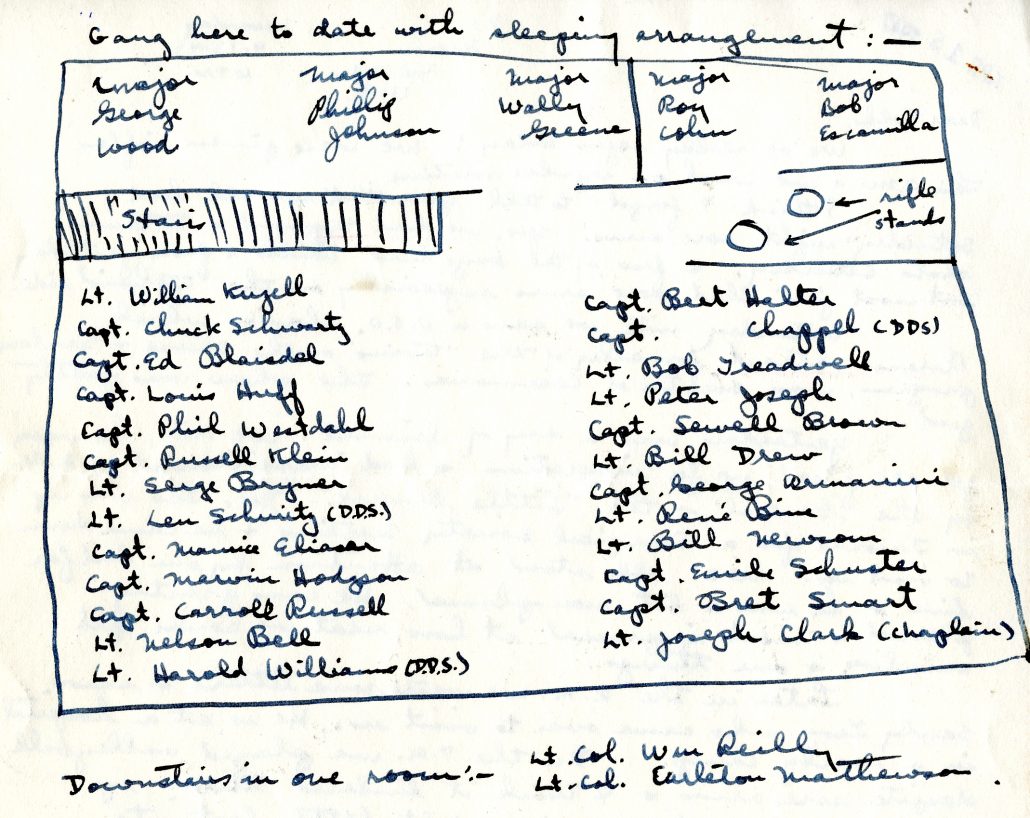 Gang here to date with sleeping arrangement : —
Major George Wood
Major Phillip Johnson
Major Wally Greene
Major Roy Cohn
Major Bob Escamilla
Stairs
rifle stands
Lt. William Kuzell
Capt. Chuck Schwartz
Capt. Ed Blaisdel
Capt. Louis Huff
Capt. Phil Westdahl
Capt. Russell Klein
Lt. Serge Bryner
Lt. Len Schmitz (D.D.S.)
Capt. Maurice Eliaser
Capt. Marvin Hodgson
Capt. Carroll Russell
Lt. Nelson Bell
Lt. Harold Williams (D.D.S.)
Capt. Bert Halter
Capt. Chappel (DDS)
Lt. Bob Treadwell
Lt. Peter Joseph
Capt. Sewell Brown
Lt. Bill Drew
Capt. George Armanini
Lt. René Bine
Lt. Bill Newsom
Capt. Emile Schuster
Capt Bret Smart
Lt. Joseph Clark (Chaplain)
Downstairs in one room :-
Lt. Col. Wm Reilly
Lt. Col. Earleton Matthewson .